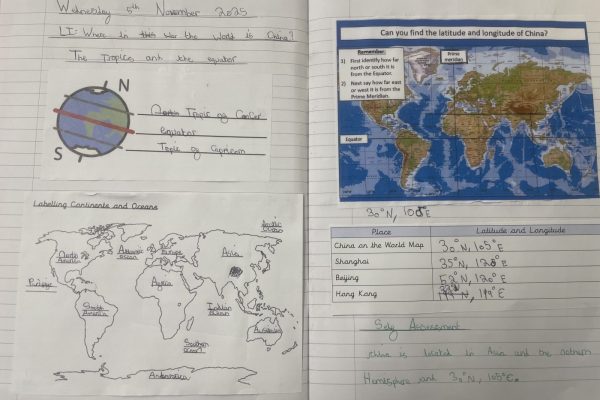 Wednesday 5th November 2025
LI: Where in the world is China?
The Tropics and the equator
N
S
Tropic of Cancer
equator
Tropic of Capricorn
Labelling Continents and Oceans
Arctic ocean
North America
Atlantic ocean
Europe
Asia
Africa
South America
Indian ocean
Australia
Southern ocean
Antarctica
Can you find the latitude and longitude of China?
Remember:
1) First identify how far north or south it is from the Equator.
2) Next say how far east or west it is from the Prime Meridian.
Prime meridian
Equator
30°N, 105°E
Place Latitude and Longitude
China on the World Map 30°N, 105°E
Shanghai 35°N, 120°E
Beijing 120°E
Hong Kong 119°E
Self Assessment
China is located in Asia and the nothern
Hemisphere and 30°N, 105°E.